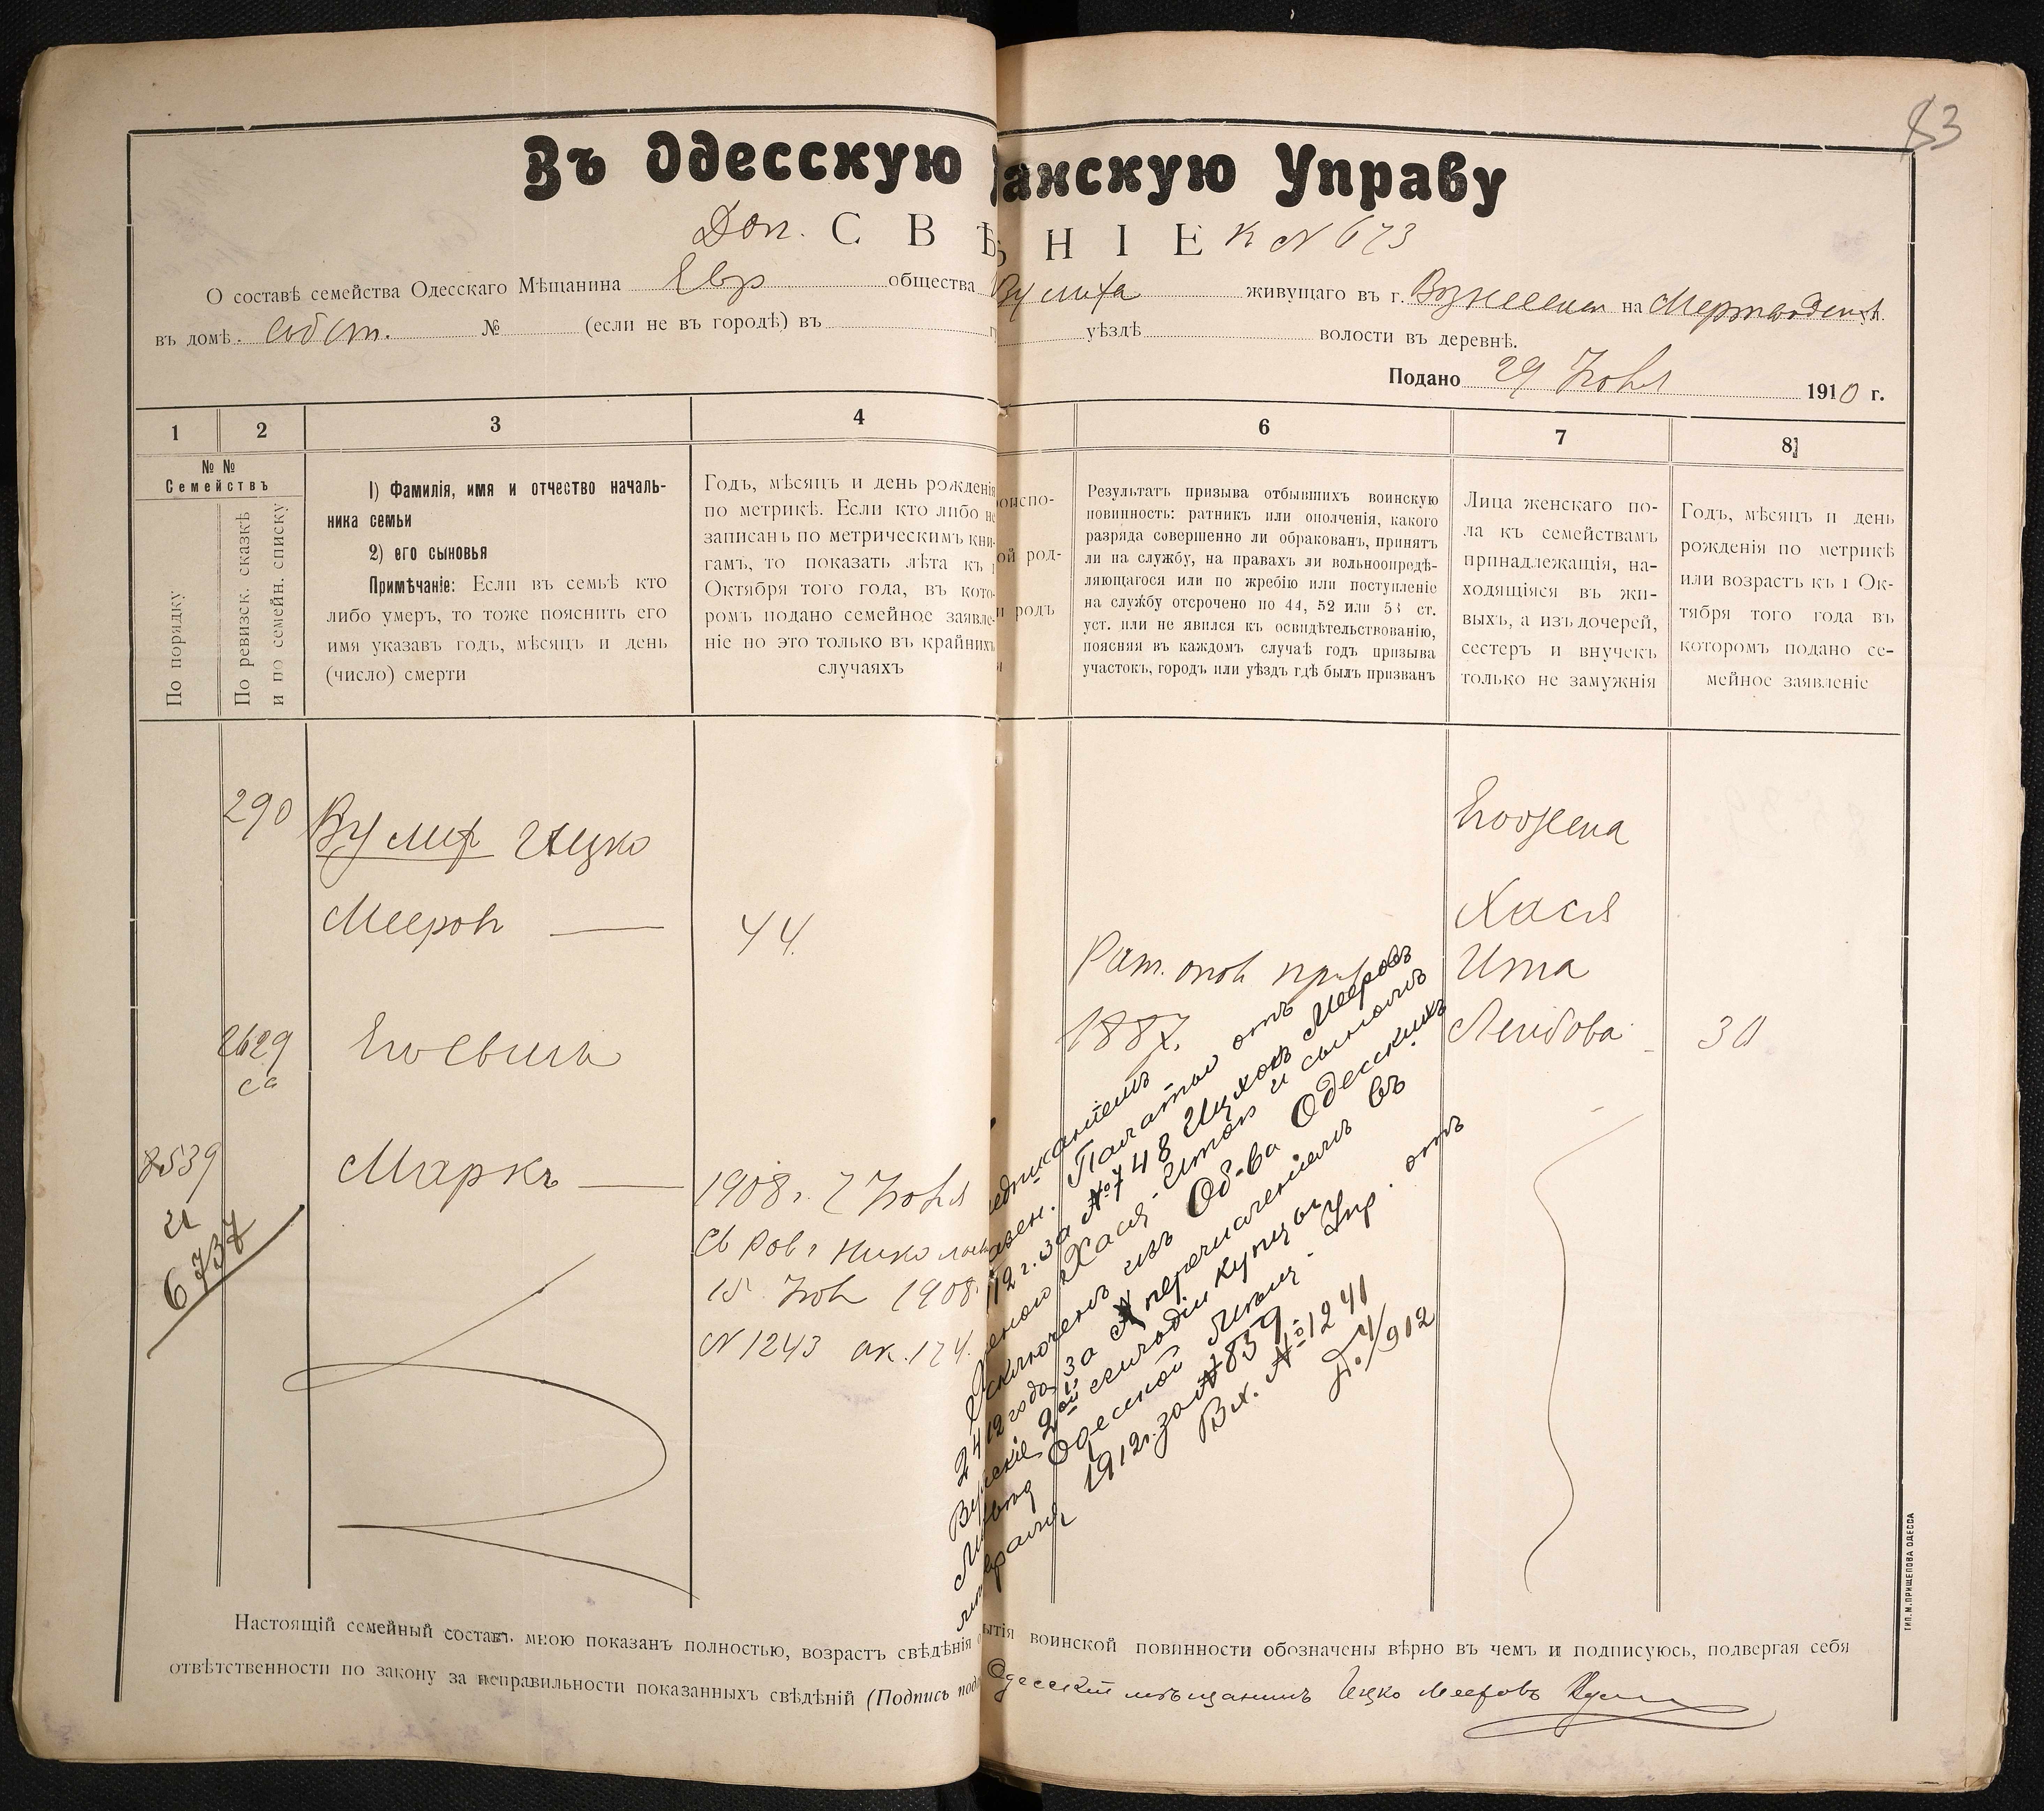 83
Въ Одесскую анскую Управу
Доп. С В Ѣ Н І Е к N 673
О составѣ семейства Одесскаго Мѣщанина Евр общества живущаго въ г. на
въ домѣ собст. № (если не въ городѣ) въ уѣздѣ волости въ деревнѣ.
Подано 29 1910 г.
1 2 3 4 6 7 8
№ №
Семействъ
По порядку
По ревизск. сказкѣ
и по семейн. списку
1) Фамилія, имя и отчество началь-
ника семьи
2) его сыновья
Примѣчаніе: Если въ семьѣ кто
либо умеръ, то тоже пояснить его
имя указавъ годъ, мѣсяцъ и день
(число) смерти
Годъ, мѣсяцъ и день рожденія
по метрикѣ. Если кто либо не
записанъ по метрическимъ кни-
гамъ, то показать лѣта къ 1
Октября того года, въ кото-
ромъ подано семейное заявле-
ніе но это только въ крайнихъ
случаяхъ
оиспо-
ой род-
и родъ
Результатъ призыва отбывшихъ воинскую
повинность: ратникъ или ополченія, какого
разряда совершенно ли обракованъ, принятъ
ли на службу, на правахъ ли вольноопредѣ-
ляющагося или по жребію или поступленіе
на службу отсрочено по 44, 52 или 53 ст.
уст. или не явился къ освидѣтельствованію,
поясняя въ каждомъ случаѣ годъ призыва
участокъ, городъ или уѣздъ гдѣ былъ призванъ
Лица женскаго по-
ла къ семействамъ
принадлежащія, на-
ходящіяся въ жи-
выхъ, а изъ дочерей,
сестеръ и внучекъ
только не замужнія
Годъ, мѣсяцъ и день
рожденія по метрикѣ
или возрастъ къ 1 Ок-
тября того года въ
которомъ подано се-
мейное заявленіе
290 Вулих Ицко
Мееров 44.
2629
са
8539
и
6737
Маркъ
1908 г.
15 1908
N 1243 ак. 174.
Рат. опол
1887.
Его жена
Хася
Ита
Лейбова 30
отъ
Палатью
за №748 Ицхокъ Мееровъ
Хася-Итой и сыномъ
изъ Об-ва Одесскихъ
за перечисленіемъ въ
2ой гильдіи купцы
Одесской Мѣщ. Упр. отъ
1912г. за №839
Вх. №1241
Д. 4/912
Настоящій семейный составъ мною показанъ полностью, возрастъ свѣдѣнія о ытія воинской повинности обозначены вѣрно въ чемъ и подписуюсь, подвергая себя
отвѣтственности по закону за неправильности показанныхъ свѣдѣній (Подпись под Одесскій мѣщанинъ Ицко Мееровъ
ТИП. М. ПРИЩЕПОВА ОДЕССА